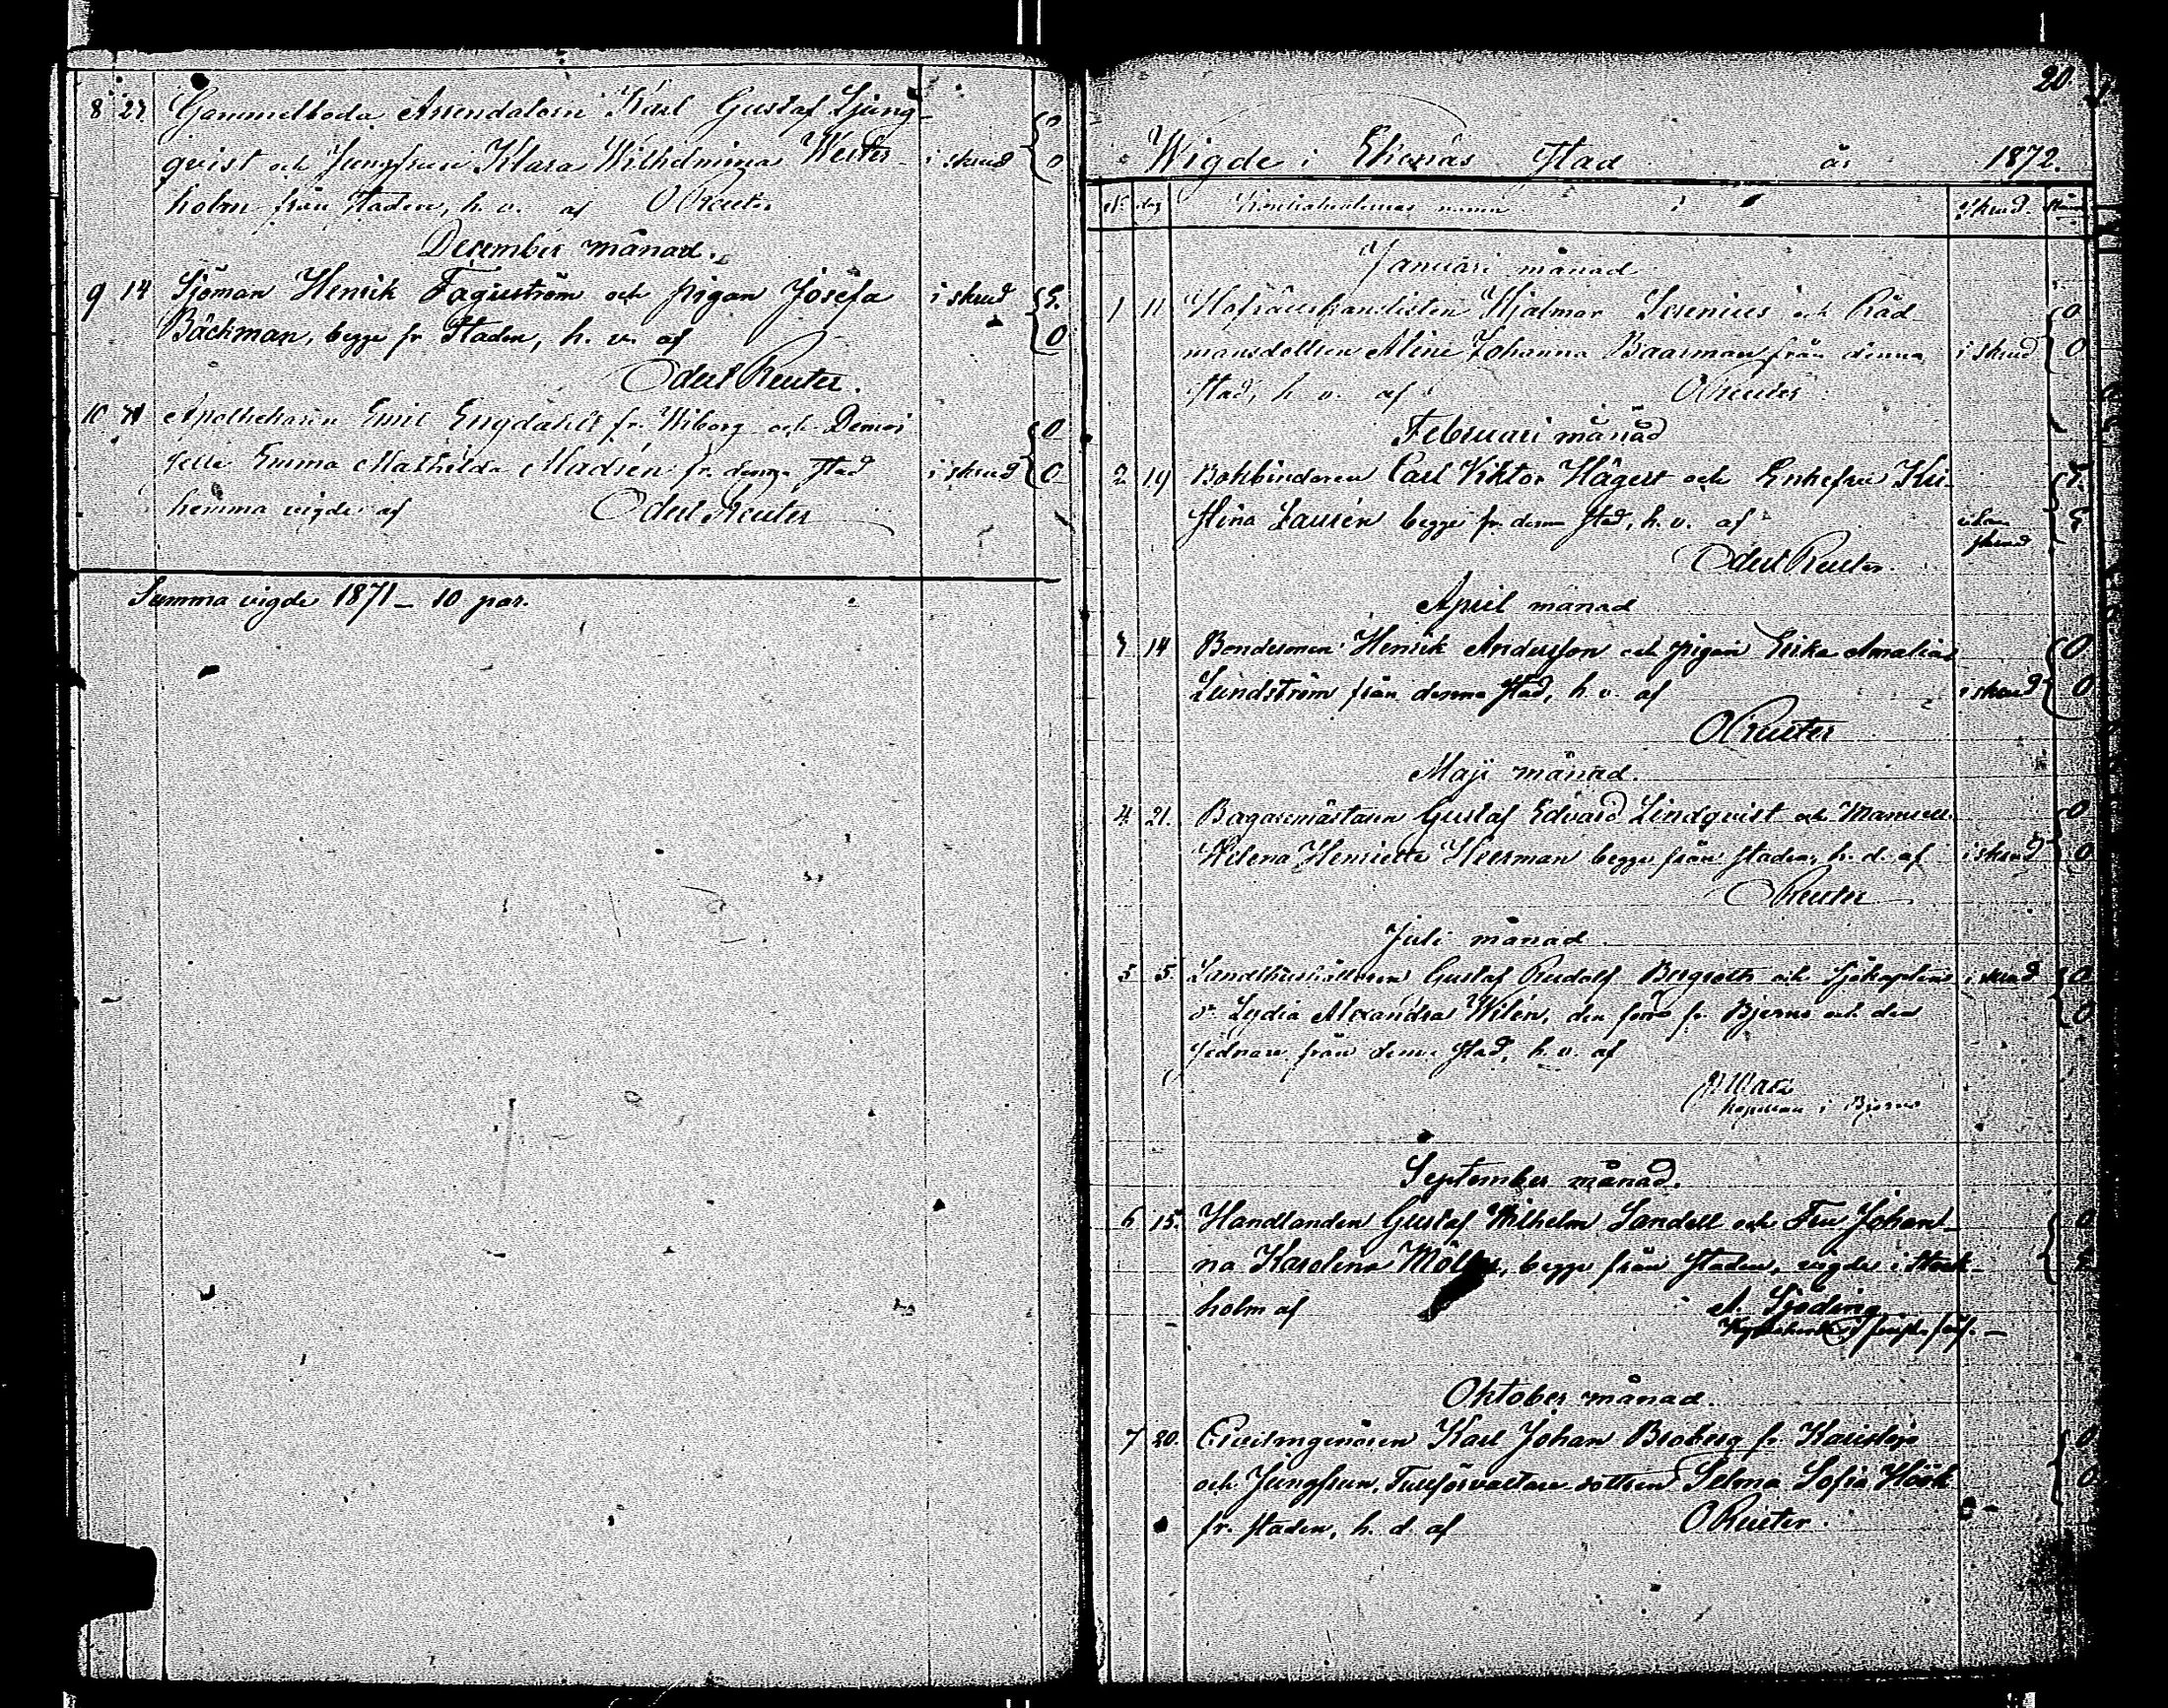 8 27 Gammelboda Arrendatorn Karl Gustaf Ljung-
qvist och Jungfrun Klara Wilhelmina Wester- i skrud 0
holm från staden, h. v. af O Reuter 0
December månad.
9 14 Sjöman Henrik Fagerström och pigan Josefa i skrud E.
Bäckman, begge fr Staden, h. v. af 0
Odert Reuter.
10 Apothekaren Emil Engdahl fr. Wiborg och Demoi 0
selle Emma Mathilda Madsén fr. denna stad i skrud 0
hemma vigde af Odert Reuter
Summa vigde 1871 – 10 par.
20
Wigde i Ekenäs Stad år 1872.
No dag Kontrahenternas namn Skrud.
Januari månad
1 11 Hofrättskanslisten Hjalmar Serenius och Råd 0
mansdottren Mini Johanna Baarman från denna i skrud 0
stad, h v. af O Reuter
Februari månad
2 19 Bokbindaren Carl Viktor Hägert och Enkefru Kri-
stina Laurén begge fr. denna stad, h. v. af utan E
skrud
Odert Reuter.
April månad
3 14 Bondesonen Henrik Andersson och pigan Erika Amalia 0
Lundström från denna stad, h v. af i skrud 0
O Reuter
Maji månad.
4. 21. Bagaremästaren Gustaf Edvard Lindqvist och Mamsell 0
Helena Henriette Heerman begge från staden, h. d. af i skrud 0
O Reuter
Juli månad
5 5. Landthushållaren Gustaf Rudolf Bergroth och Sjökaptens i skrud 0
dr Lydia Alexandra Wilén, den förra fr Bjerno och den 0
sednare från denna stad, h. v. af
kapellan i Bjerno
September månad.
6 15. Handlanden Gustaf Wilhelm Sandell och Fru Johan 0
na Karolina Möller, begge från staden, vigde i Stock- E
holm af A. Sjöding
Oktober månad.
7 20. Civilingeniören Karl Johan Broberg fr Karislojo 0
och Jungfrun, Tullförvaltare dottren Selma Sofia Höök 0
fr. staden, h. d. af O Reuter.